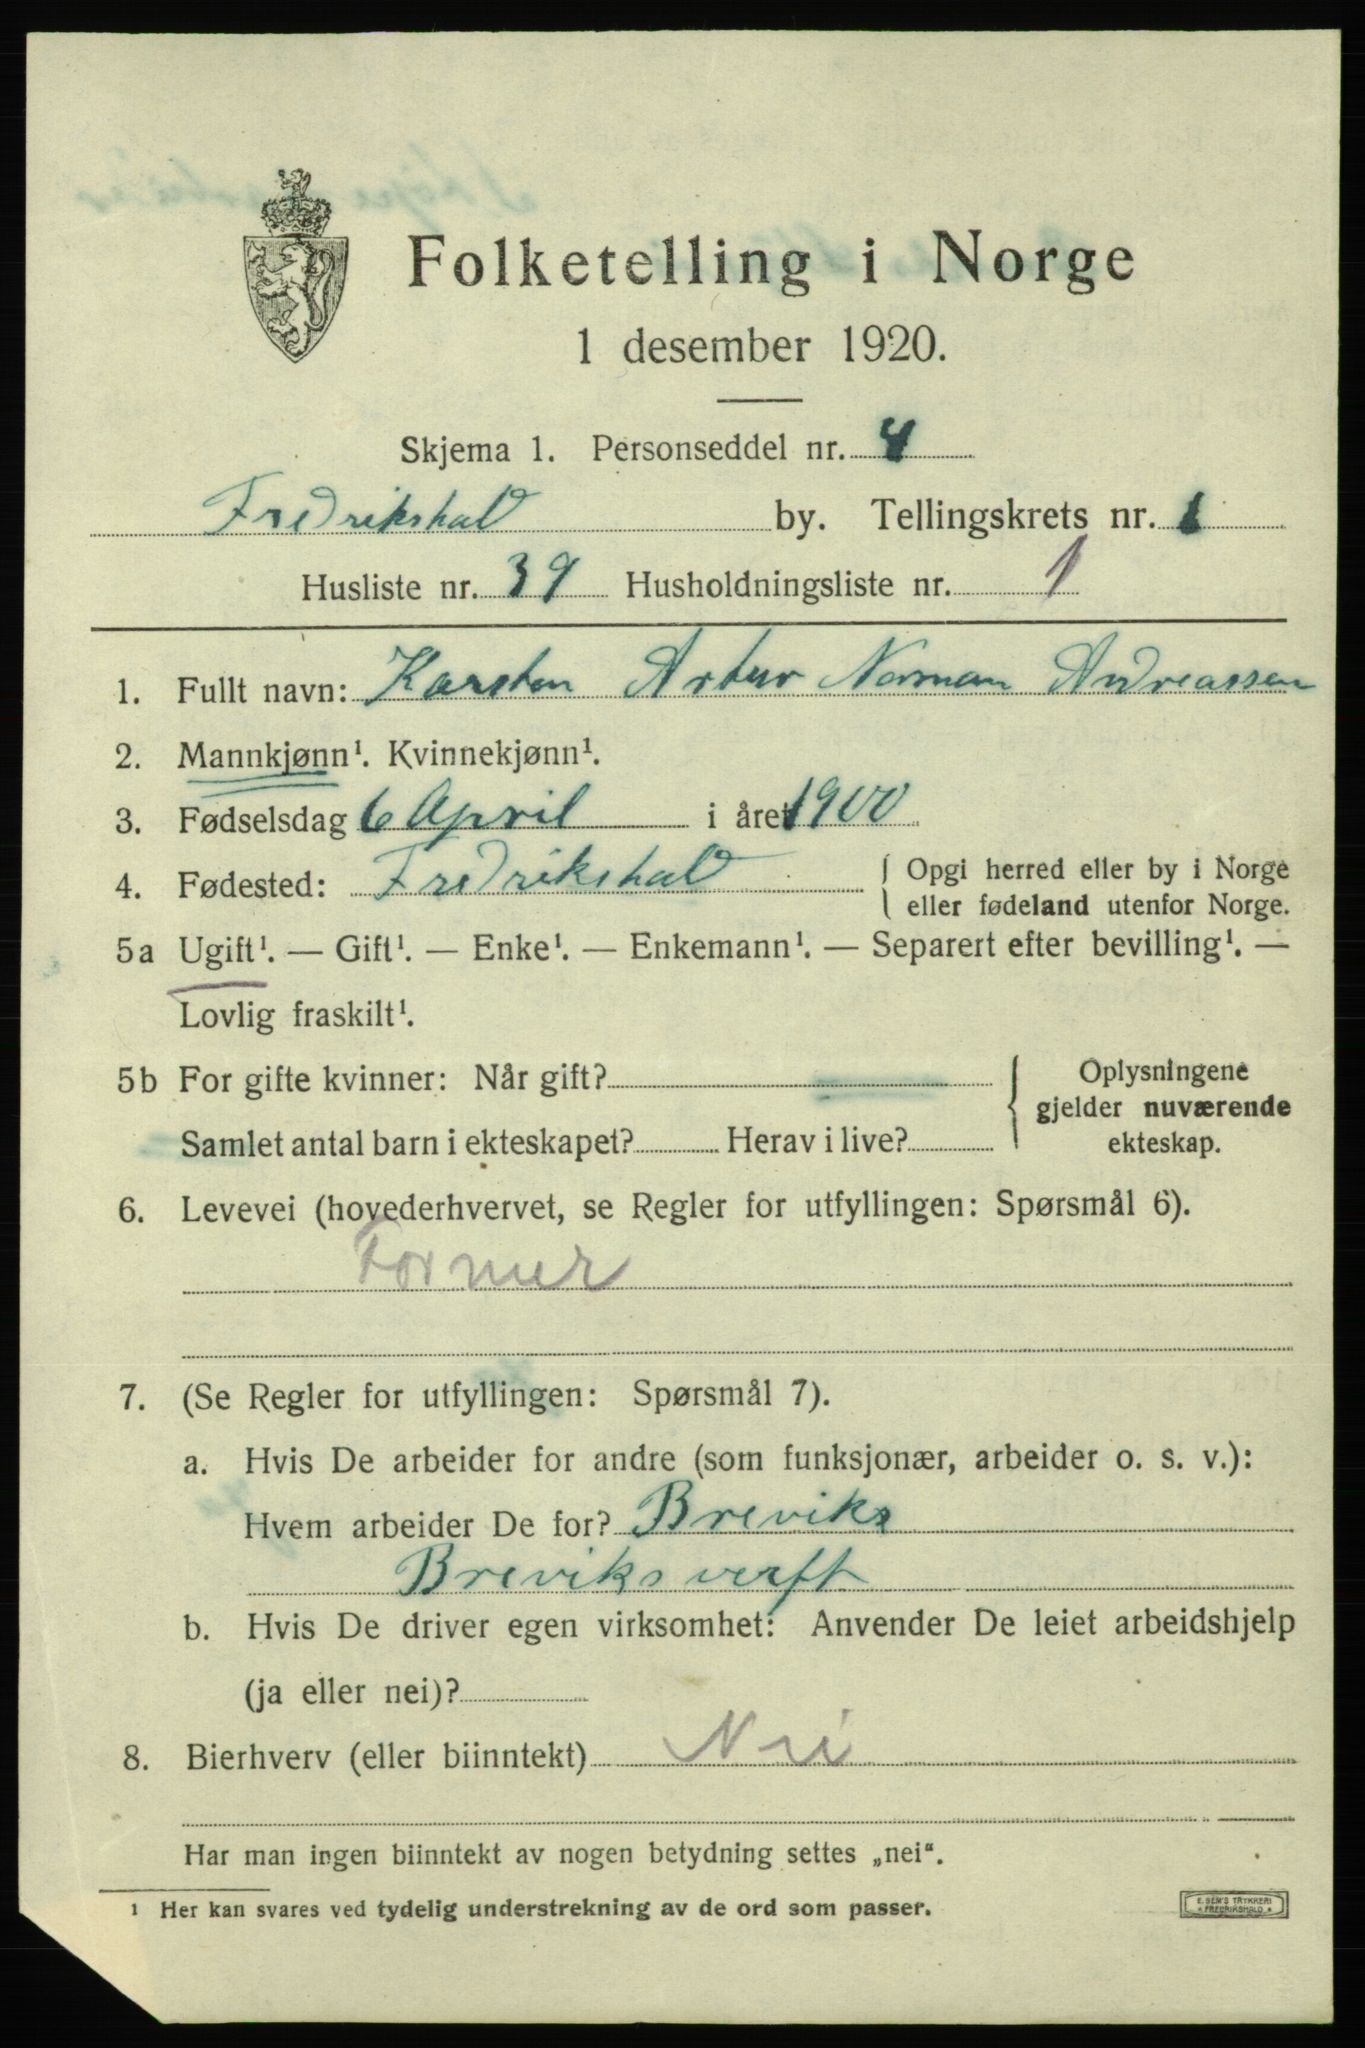 Folketelling i Norge
1 desember 1920.
Skjema 1. Personseddel nr. 4
Fredrikshald by. Tellingskrets nr. 1
Husliste nr. 39 Husholdningsliste nr. 1
1. Fullt navn: Karsten Artur Norman Andreassen
2. Mannkjønn¹. Kvinnekjønn¹.
3. Fødselsdag 6 April i året 1900
4. Fødested: Fredrikshald { Opgi herred eller by i Norge
eller fødeland utenfor Norge.
5a Ugift¹. — Gift¹. — Enke¹. — Enkemann¹. — Separert efter bevilling¹. —
Lovlig fraskilt¹.
5b For gifte kvinner: Når gift? — { Oplysningene
gjelder nuværende
Samlet antal barn i ekteskapet? Herav i live? ekteskap.
6. Levevei (hovederhvervet, se Regler for utfyllingen: Spørsmål 6).
Former
7. (Se Regler for utfyllingen: Spørsmål 7).
a. Hvis De arbeider for andre (som funksjonær, arbeider o. s. v.):
Hvem arbeider De for? Breviks
Breviks verft
b. Hvis De driver egen virksomhet: Anvender De leiet arbeidshjelp
(ja eller nei)?
8. Bierhverv (eller biinntekt) Nei
Har man ingen biinntekt av nogen betydning settes „nei“.
¹ Her kan svares ved tydelig understrekning av de ord som passer.
E. SEM'S TRYKKERI
* FREDRIKSHALD *